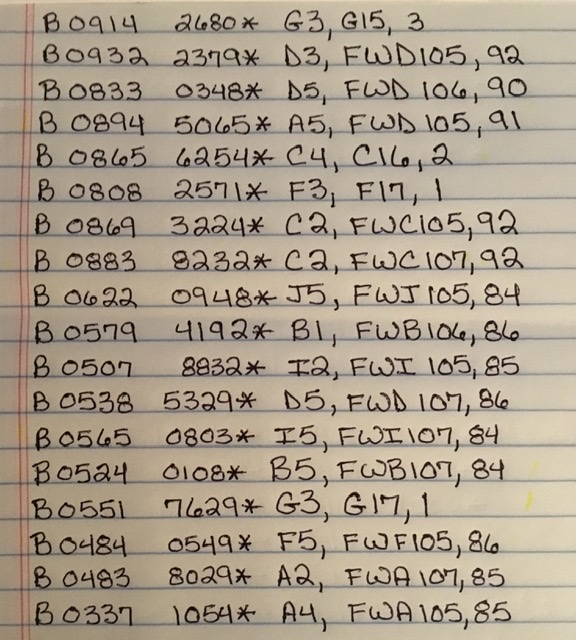 B 0914 2680* G3, G15, 3
B 0932 2379* D3, FWD105, 92
B 0833 0348* D5, FWD 106, 90
B 0894 5065* A5, FWD 105, 91
B 0865 6254* C4, C16, 2
B 0808 2571* F3, F17, 1
B 0869 3224* C2, FWC105, 92
B 0883 8232* C2, FWC107, 92
B 0622 0948* J5, FWJ105, 84
B 0579 4192* B1, FWB106, 86
B 0507 8832* I2, FWI 105, 85
B 0538 5329* D5, FWD 107, 86
B 0565 0803* I5, FWI107, 84
B 0524 0108* B5, FWB107, 84
B 0551 7629* G3, G17, 1
B 0484 0549* F5, FWF105, 86
B 0483 8029* A2, FWA107, 85
B 0337 1054* A4, FWA105, 85